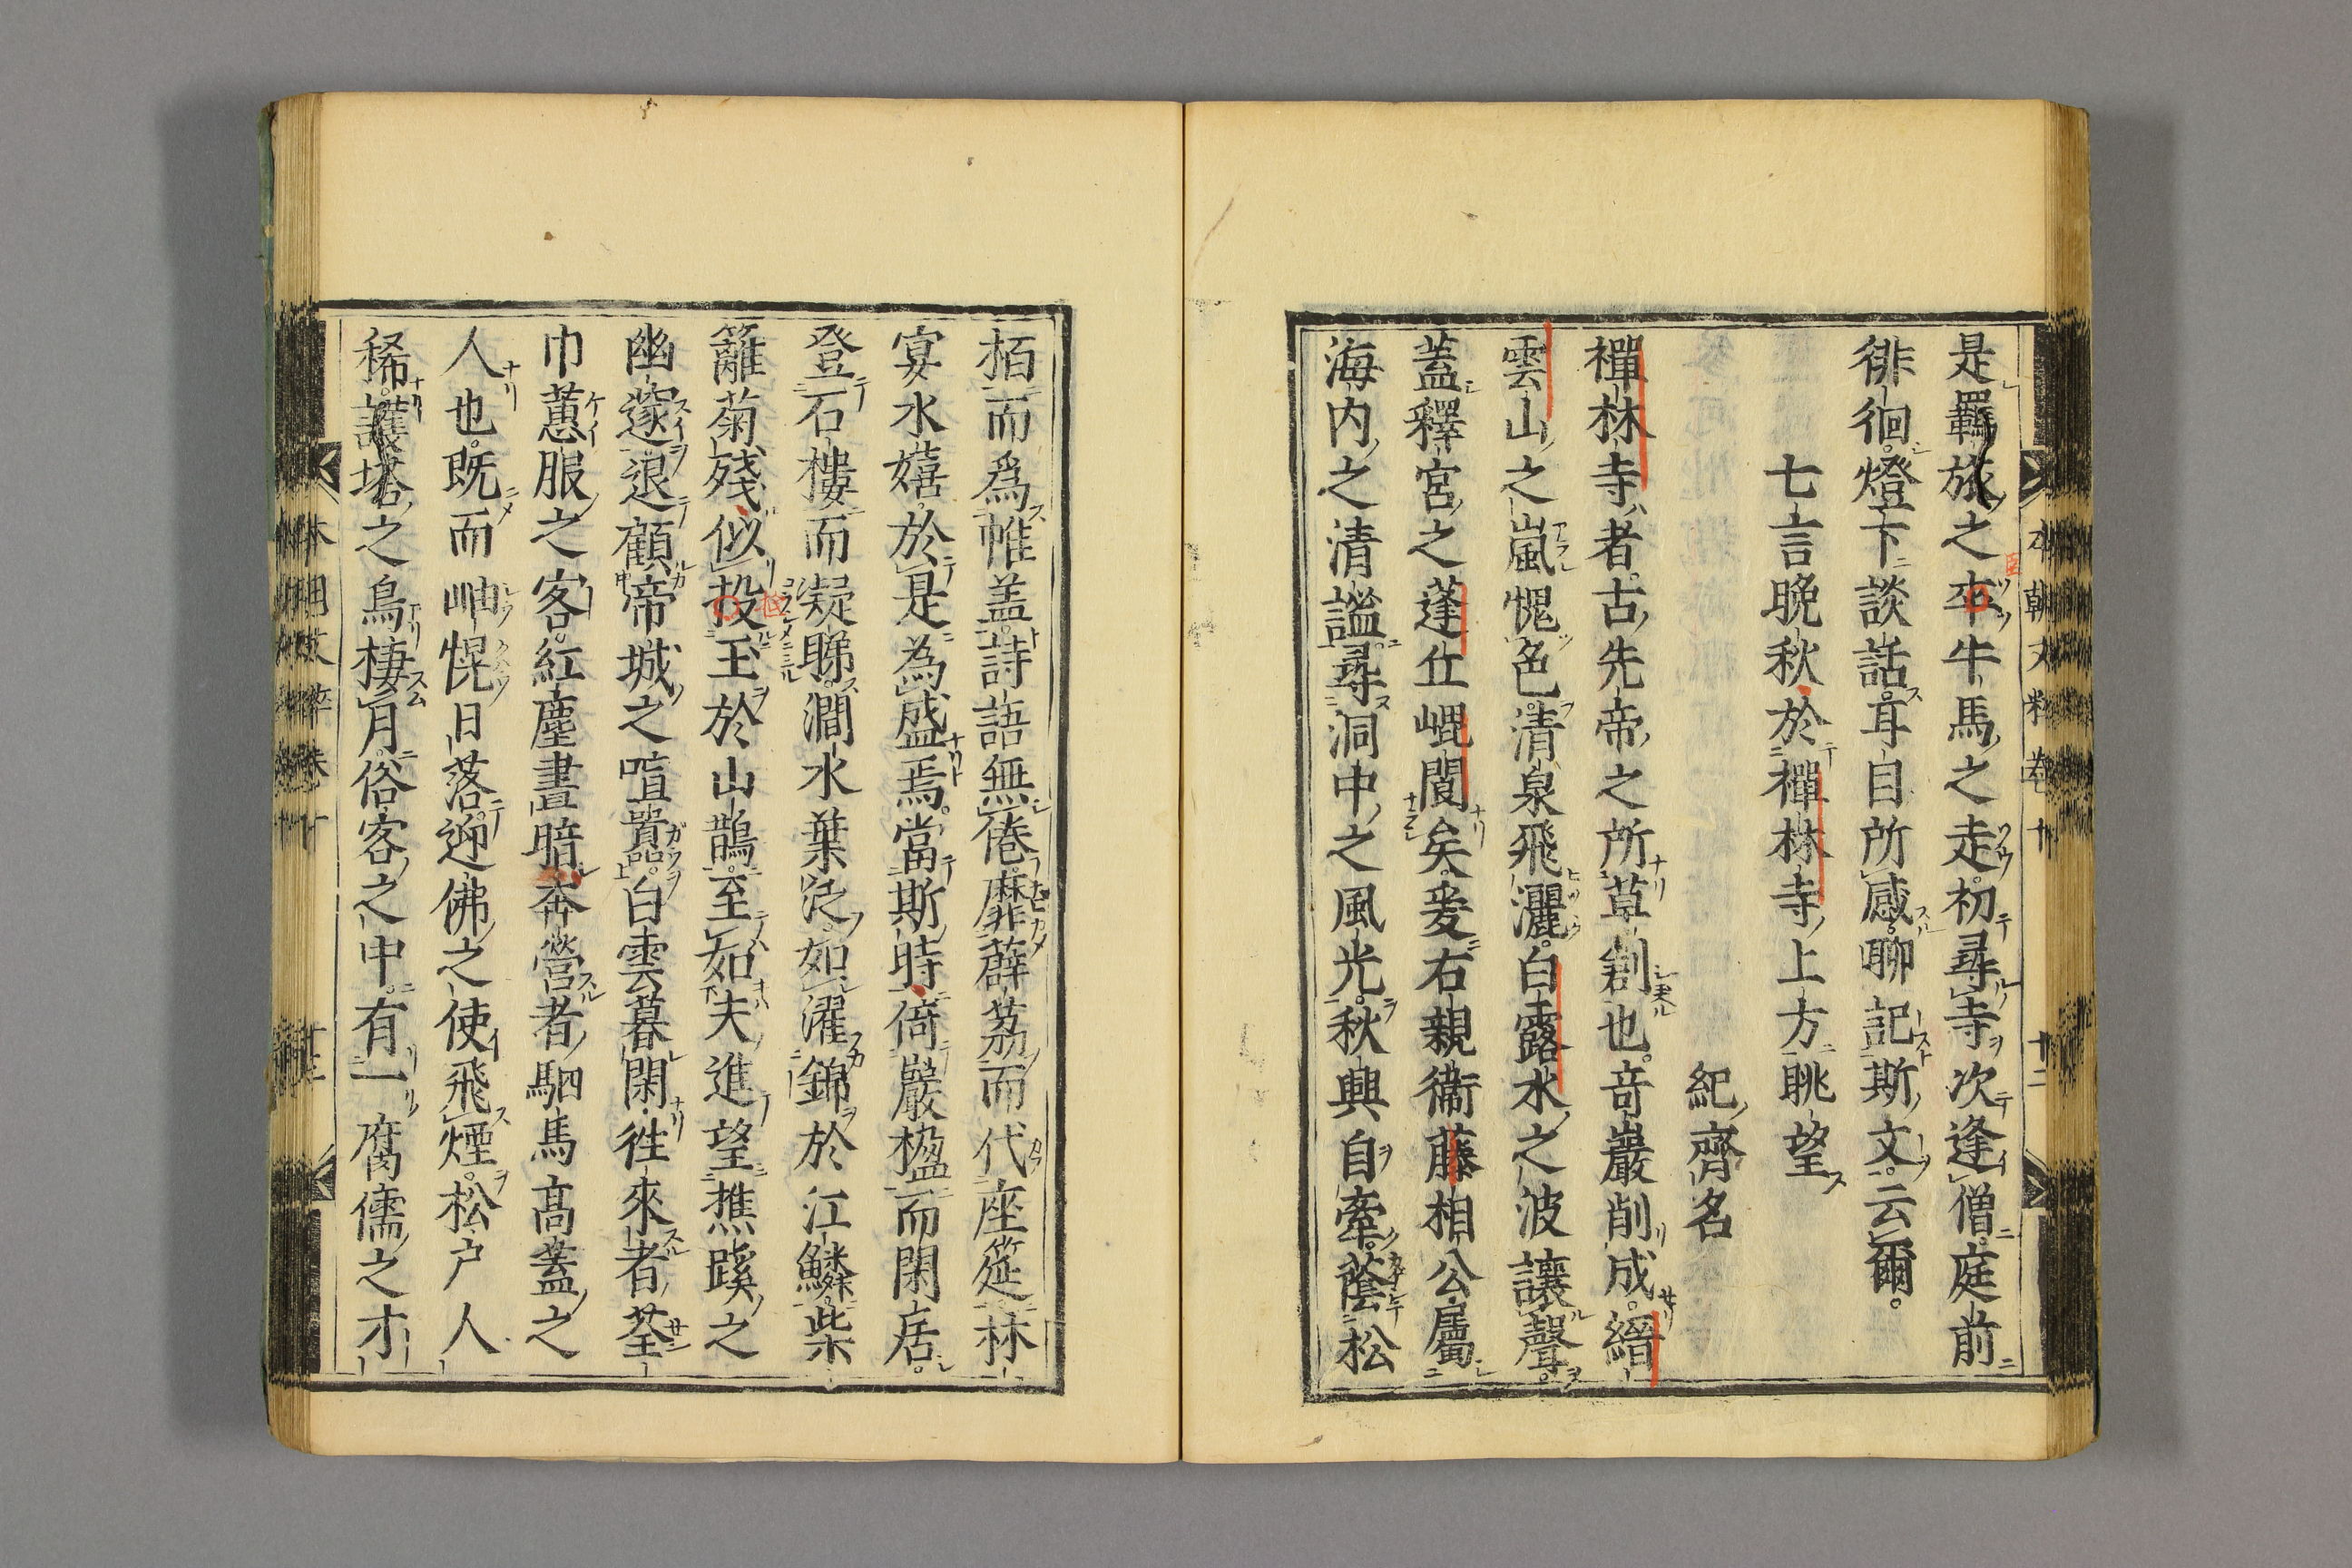 是羈旅之卒牛馬之走初尋寺次逢僧庭前
徘徊燈下談話耳目所感聊記斯文云爾
七言晩秋於禪林寺上方眺望
紀齊名
禪林寺者古先帝之所草創也奇巖削成縉
雲山之嵐愧色清泉飛灑白露水之波讓聲
蓋釋宮之蓬丘崐閬矣爰右親衞藤相公屬
海内之清謐尋洞中之風光秋興自牽蔭松
栢而爲帷盖詩語無倦靡薜茘而代座筵林
宴水嬉於是為盛焉當斯時倚巖楹而閑居
登石樓而凝睇澗水葉泛如濯錦於江鱗柴
籬菊殘似投玉於山鵲至如夫進望樵蹊之
幽邃退顧帝城之喧囂白雲暮閑徃來者荃
巾蕙服之客紅塵晝暗奔營者駟馬髙蓋之
人也既而岫幌日落迎佛之使飛煙松户人
稀護塔之鳥棲月俗客之中有一腐儒之才
本朝文粹卷十 十二